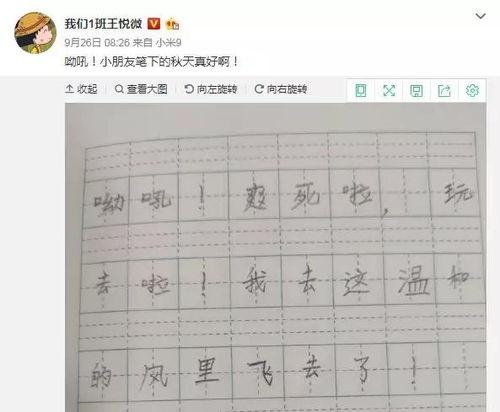 我们1班王悦微
9月26日 08:26 来自 小米9
呦吼！小朋友笔下的秋天真好啊！
收起 查看大图 向左旋转 向右旋转
呦吼！爽死啦，玩
去啦！我去这温和
的风里飞去了！